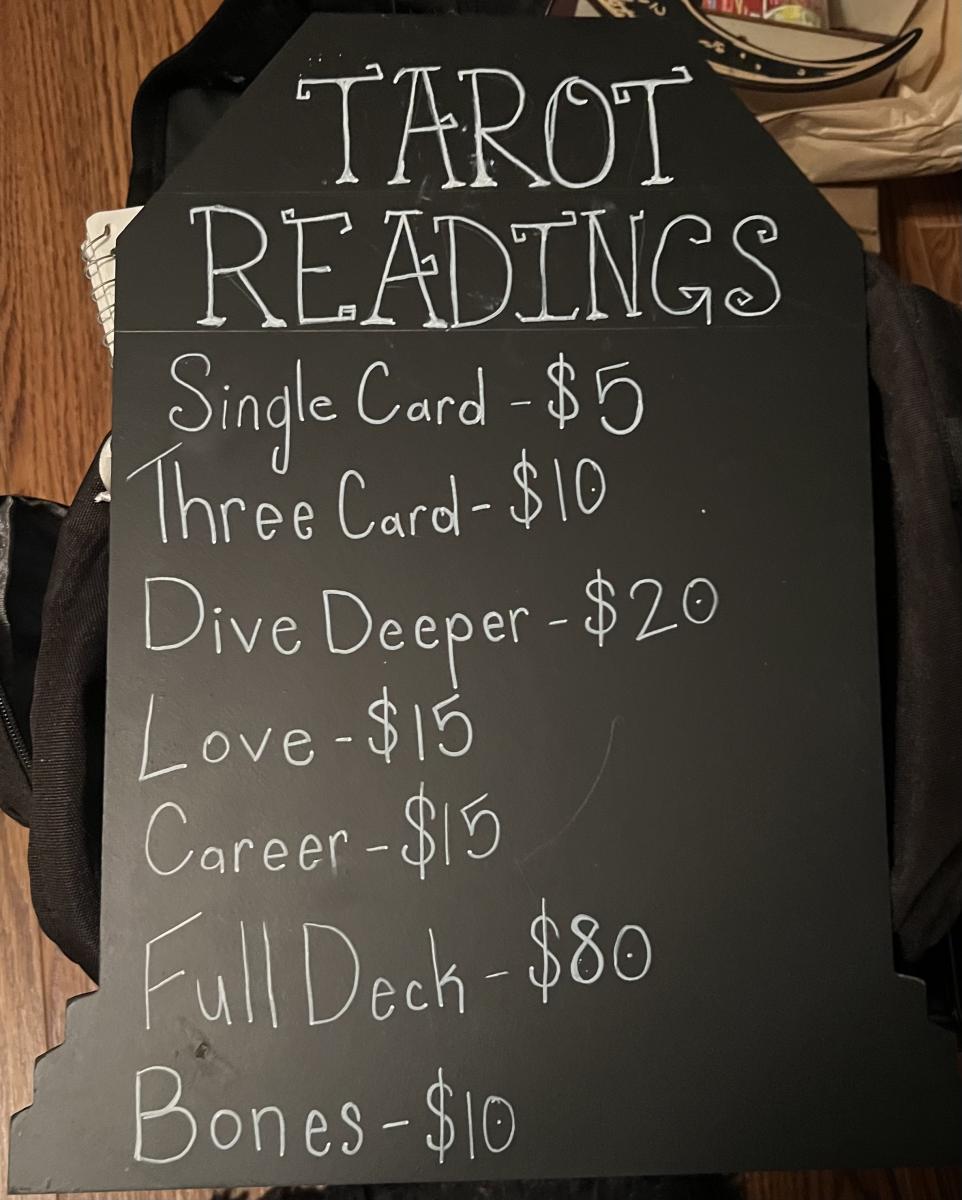 TAROT
READINGS
Single Card - $5
Three Card - $10
Dive Deeper - $20
Love - $15
Career - $15
Full Deck - $80
Bones - $10